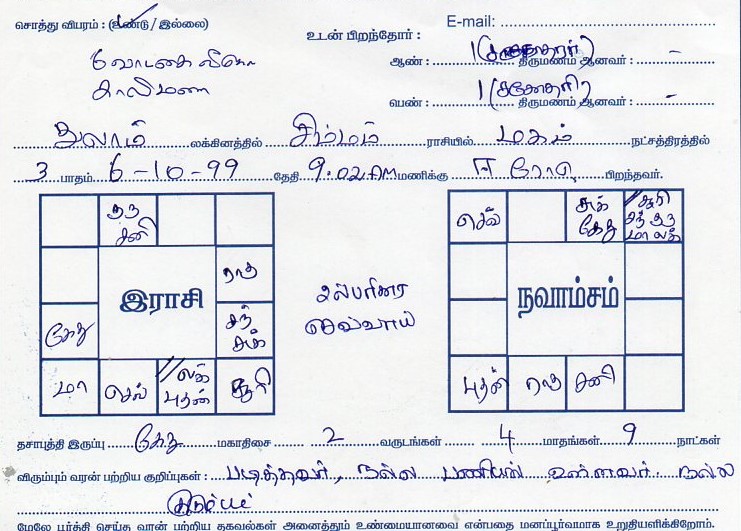 சொத்து விபரம் : (உண்டு / இல்லை)
E-mail:
சொந்த வீடு
காலிமனை
உடன் பிறந்தோர் :
ஆண் : 1 திருமணம் ஆனவர் : -
பெண் : 1 திருமணம் ஆனவர் : -
துலாம் லக்கினத்தில் சிம்மம் ராசியில் மகம் நட்சத்திரத்தில்
3 பாதம் 6-10-99 தேதி 9.02 AM மணிக்கு ஈரோடு பிறந்தவர்.
குரு
சனி
ராகு
இராசி
கேது
சந்
சுக்
மா
செவ்
லக்
புதன்
சூரி
உள்பரிகார
செவ்வாய்
செவ்
சுக்
கேது
சூரி
சந் குரு
மா லக்
நவாம்சம்
புதன்
ராகு
சனி
தசாபுத்தி இருப்பு கேது மகாதிசை 2 வருடங்கள் 4 மாதங்கள் 9 நாட்கள்
விரும்பும் வரன் பற்றிய குறிப்புகள் : படித்தவர், நல்ல பணியில் உள்ளவர். நல்ல
குடும்பம்
மேலே பூர்த்தி செய்த வரன் பற்றிய தகவல்கள் அனைத்தும் உண்மையானவை என்பதை மனப்பூர்வமாக உறுதியளிக்கிறோம்.